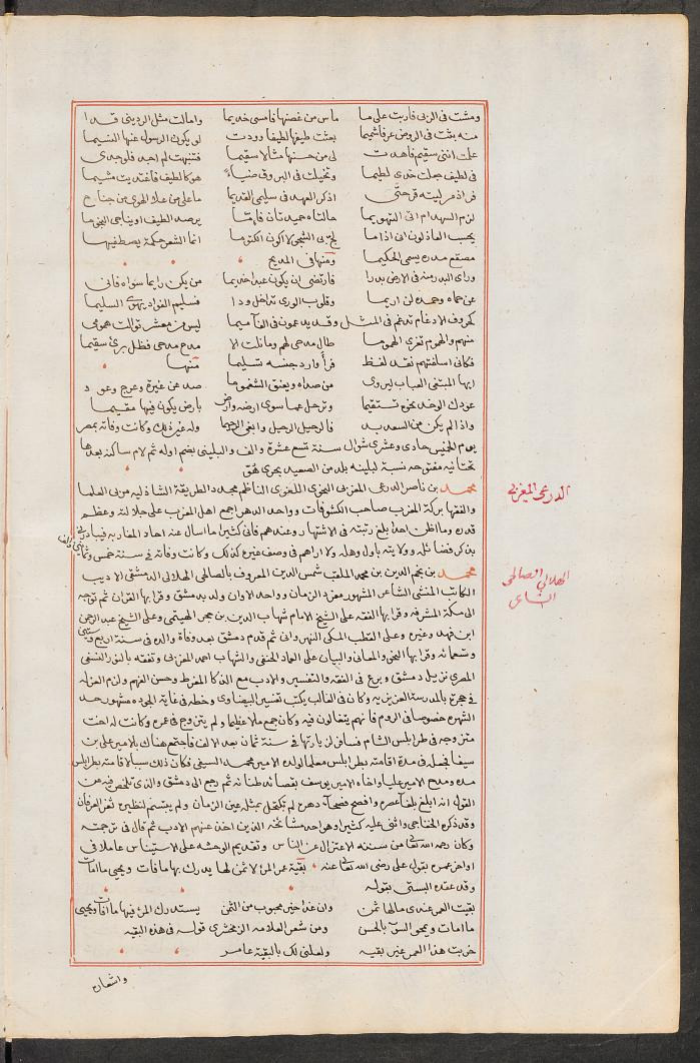 ومشت فى الربى فاربت على ما ماس من غصنها فامسى خديما وامالت مثل الردينى قدا
منه بثت فى الروض عرفا شميما بعثت طيفها لطيفا وودت لو يكون الرسول عنها النسيما
علمت اننى سقيم فاهدت لى من حسنها مثالا سقيما فتنبهت لم اجد فلوجدى
فى لطيف جعلت خدى لطيما وتخيلت فى البروق ضياء هوكالطيف فاغتديت مشيما
اذكر العهد فى سليمى القديما ما على من علا الهوى من جناح
لزم السهد ام اتى التهويما يرصد الطيف او يناجى النجوما
يحسب العاذلون انى اذا ما لج بى الشجو لا اكون الكتوما انما الشعر حكمة يصطفيها
مصقع مدره يسمى الحكيما ومنها فى المديح
وراى البدر منه فى الارض بدرا فارتضى ان يكون عبدا خديما من يكن رايما سواه فانى
عن حماه وحمده لن اريما وقلوب الورى تداخل ودا فسليم الفواد يهوى السليما
كحروف الادغام تدغم فى المثل وقد يدغمون فى الفا ميما ليس من معشر توالت همومى
منهم والهموم تغرى الهموما طال مدحى لهم وما نلت الا مدح مدحى فظل يرئ سقيما
فكانى اسلفتهم نقد لفظ فرأ وارد جنسه تسليما منها
ايها المبتغى العباب ليروى من صداه ويعنق الشغموما صد عن غيره وعرج وعود
عودك الوخد نحوه تستقيما وترحل عما سوى ارضه وارض بارض يكون فيها مقيما
واذا لم يكن من السعد بد فالرحيل الرحيل وابغى الرحيما وله غير ذلك وكانت وفاته بمصر
يوم الخميس حادى وعشرى شوال سنة تسع عشرة والف والبلبينى بضم اوله ثم لام ساكنه بعدها
تحتانيه مفتوحه نسبة لبلينه بلد من الصعيد بحرى هو
محمد بن ناصر الدرعى المغربى النحوى اللغوى الناظم مجدد الطريقة الشاذليه مربى العلما
والفقها بركة المغرب صاحب الكشوفات وواحد الدهر اجمع اهل المغرب على جلالته وعظم
قدره وما اظن احدا بلغ رتبته فى الاشتهار وعندهم فانى كثيرا ما اسال عنه احاد المغاربه فيبادر
بذكر فضائله وولايته باول وهله ولا اراهم فى وصف غيره كذلك وكانت وفاته فى سنة خمس وثمانين والف
الدرعى المغربى
محمد بن نجم الدين بن محمد الملقب شمس الدين المعروف بالصالحى الهلالى الدمشقى الاديب
الكاتب المنشى الشاعر المشهور مفرد الزمان وواحد الاوان ولد بدمشق وقرا بها القران ثم توجه
الى مكة المشرفه وقرا بها الفقه على الشيخ الامام شهاب الدين بن حجر الهيتمى وعلى الشيخ عبد الرحمن
ابن فهد وغيره وعلى القطب المكى النهروانى ثم قدم دمشق بعد وفاة والده فى سنة اربع وستين
وتسعمائه وقرا بها النحو والمعانى والبيان على العماد الحنفى والشهاب احمد المغربى وتفقه بالنور النسفى
المصرى نزيل دمشق وبرع فى الفقه والتفسير والادب مع الذكا المفرط وحسن الفهم ولزم العزله
فى حجرة بالمدرسة العزيزيه وكان فى الغالب يكتب تفسير البيضاوى وخطه فى غاية الجوده مشهور حد
الشهره خصوصا فى الروم فانهم يتغالون فيه وكان جمع مالا عظيما ولم يتزوج فى عمره وكانت له اخت
متزوجه فى طرابلس الشام فسافر لزيارتها فى سنة ثمان بعد الالف فاجتمع هناك بالامير على بن
سيفا فجعله فى مدة اقامته بطرابلس معلما لولده الامير محمد السيفى فكان ذلك سببا لاقامته بطرابلس
مده ومدح الامير عليا واخاه الامير يوسف بقصائد طنانه ثم رجع الى دمشق والذى تلخص فيه من
القول انه ابلغ بلغآ عصره وافصح فصحآء دهره لم تكتحل بمثله عين الزمان ولم يبتسم لنظيره ثغر العرفان
وقد ذكره الخفاجى واثنى عليه كثيرا وهو احد مشائخه الذين اخذ عنهم الادب ثم قال فى ترجمته
وكان رحمه الله تعالى من سننه الاعتزال عن الناس وتقديم الوحشه على الاستيناس عاملا فى
اواخر عمره بقول على رضى الله تعالى عنه بقية عمر المرء لا ثمن لها يدرك بها ما فات ويحيى ما امات
وقد عقده البستى بقوله
بقيت العمر عندى ما لها ثمن وان غدا خير محبوب من الثمن يستدرك المرء فيها ما افات ويحيى
ما امات ويمحو السوء بالحسن ومن شعر العلامه الزمخشرى قوله فى هذه البقيه
خربت هذا العمر غير بقيه ولعلنى لك بالبقية عامر
الهلالى الصالحى
الشاعر
واشعاره